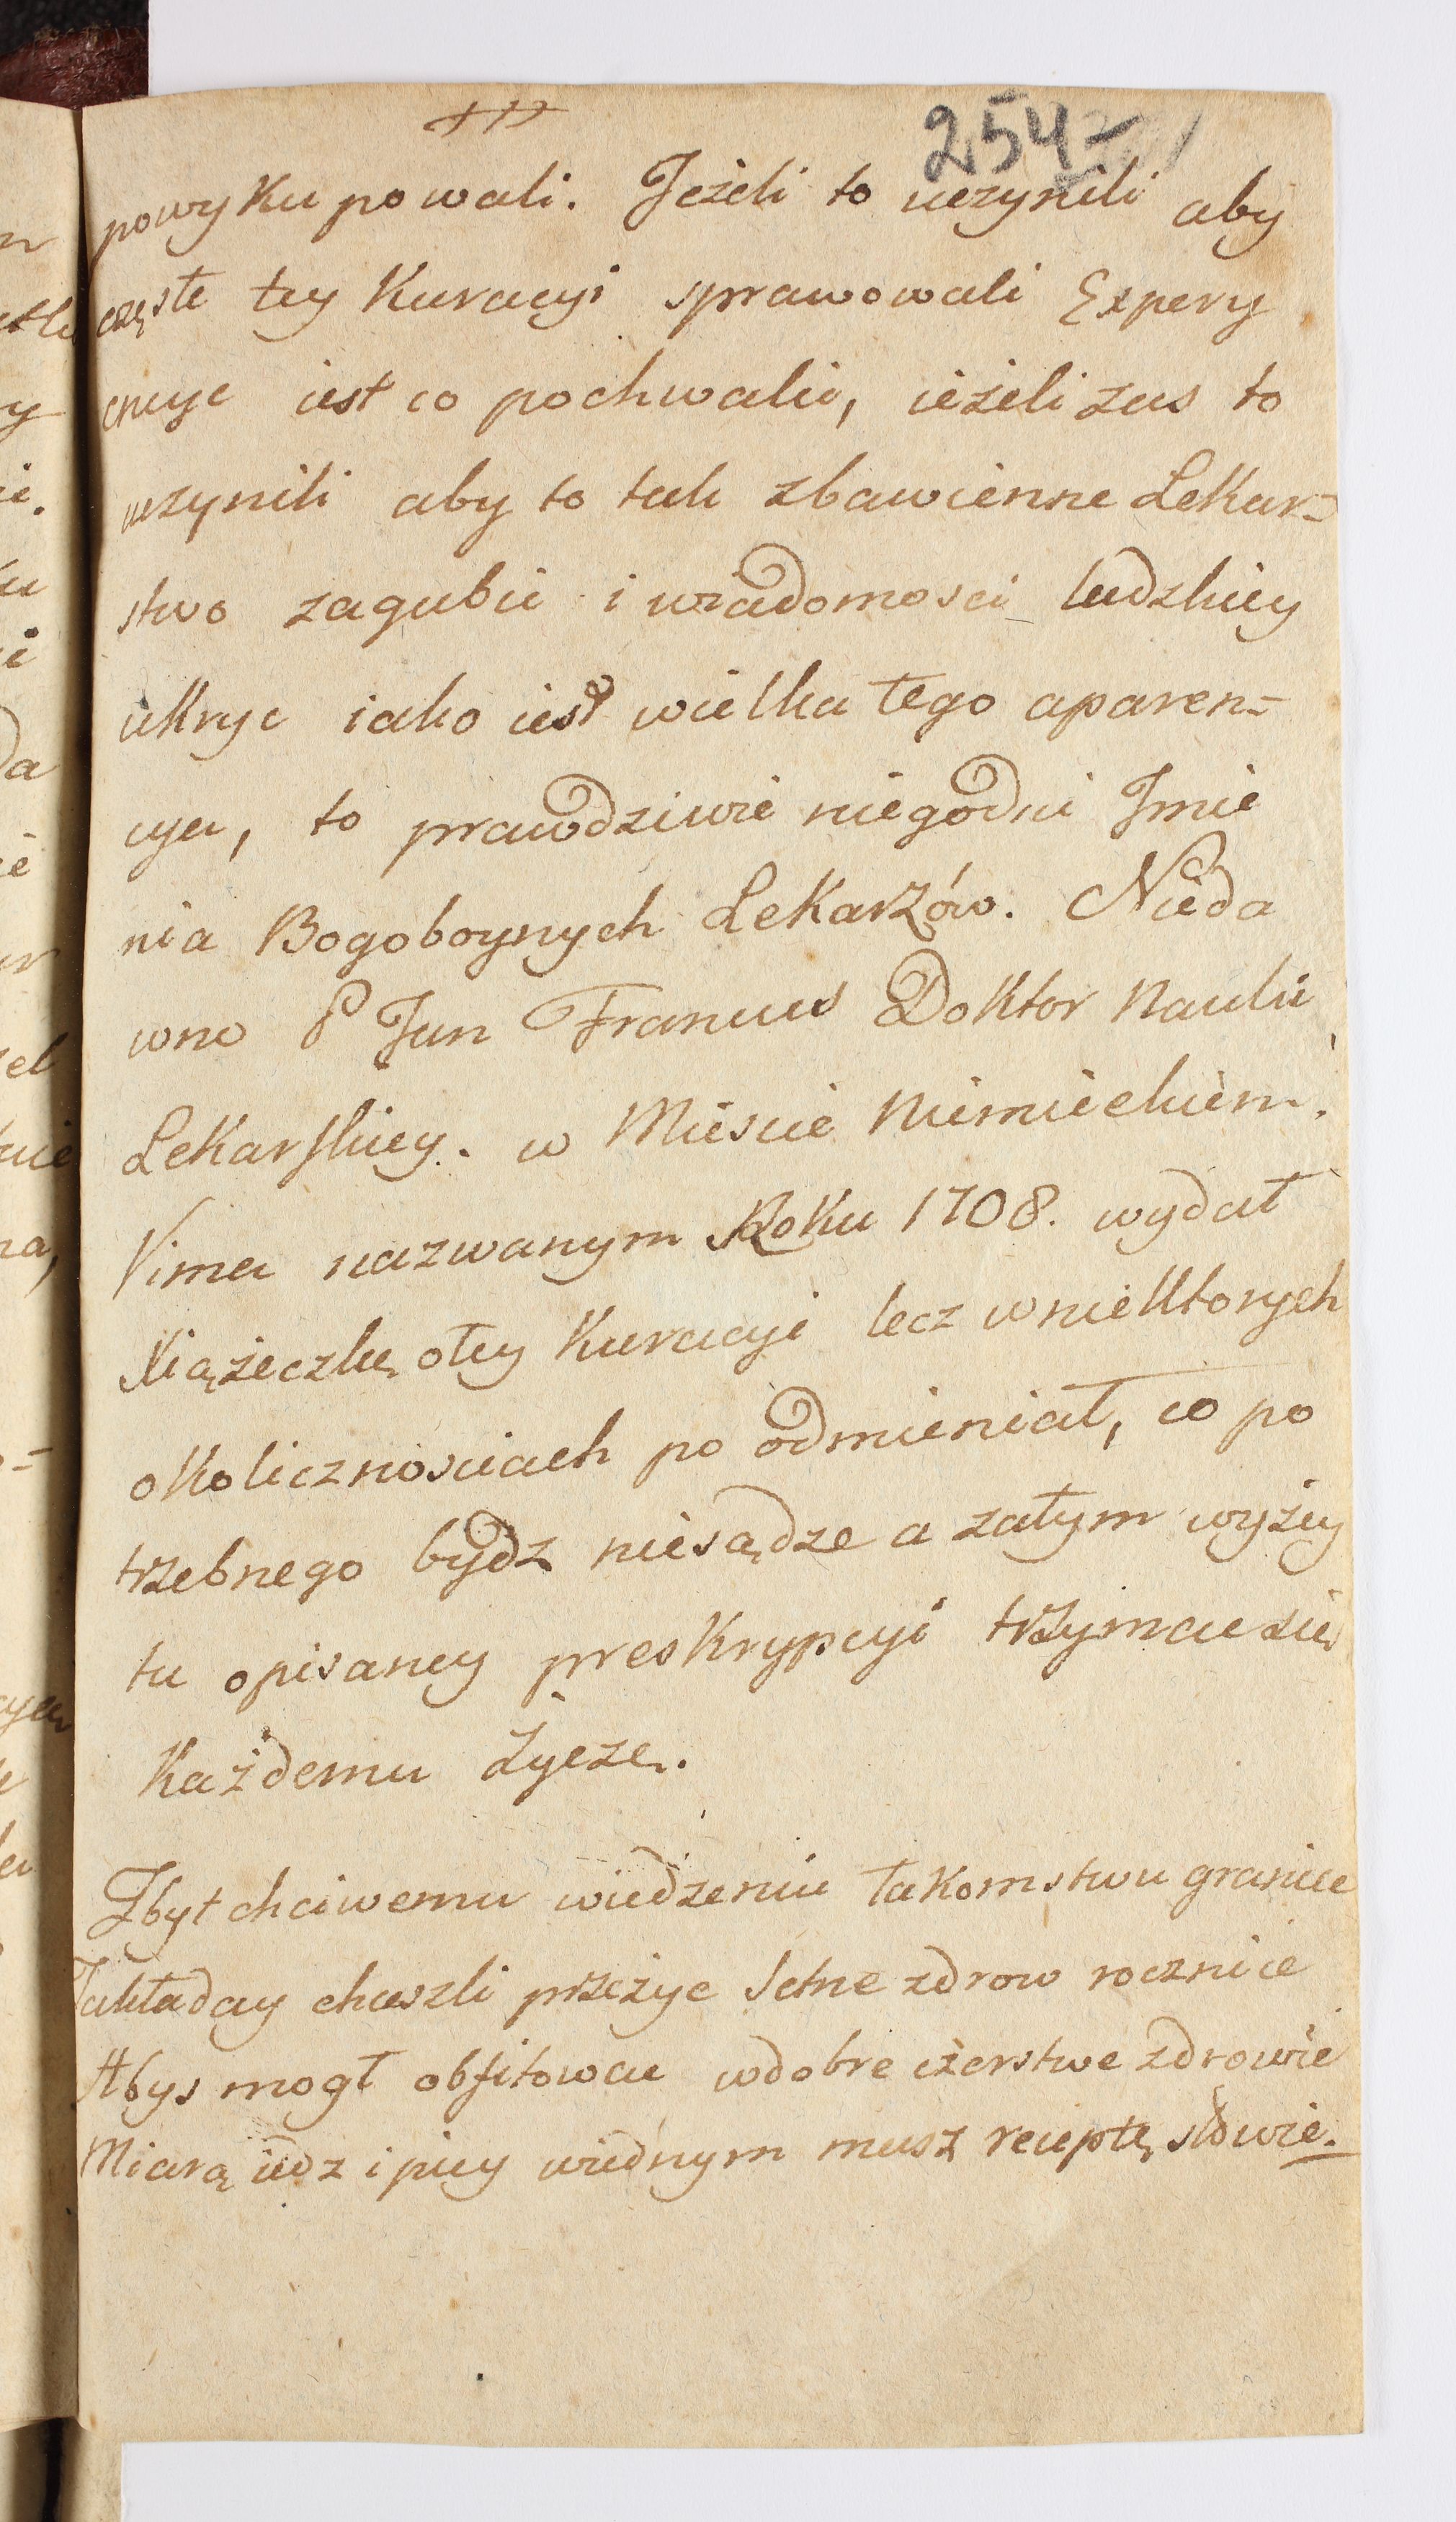 254
powyKupowali. Jeżeli to uczynili aby
częste tey Kuracyi sprawowali Expery
encye iest co pochwalić, ieżeli zas to
uczynili aby to tak zbawienne LeKar=
stwo zagubić i wiadomosci ludzkiey
uKryc iako iest wielka tego aparen=
cya, to prawdziwie niegodni Jmie
nia Bogoboynych LeKarzów. Nieda
wno P Jan Francus DoKtor Nauki
LeKarskiey. w Miescie Niemieckiem.
Vima nazwanym RoKu 1708. wydał
Xiążeczkę otey Kuracyi lecz wnieKtorych
oKolicznosciach po odmieniał, co po
trzebnego bydz niesądze a zatym wyżey
tu opisaney presKrypcyi trzymac się
Każdemu życzę.
Zbyt chciwemu wiedzeniu łaKomstwu granice
Zakładay chceszli przeżyc Setne zdrow rocznice
Abys mogł obfitowac wdobre czerstwe zdrowie
Miarą iedz i piey wiednym masz receptę słowie.